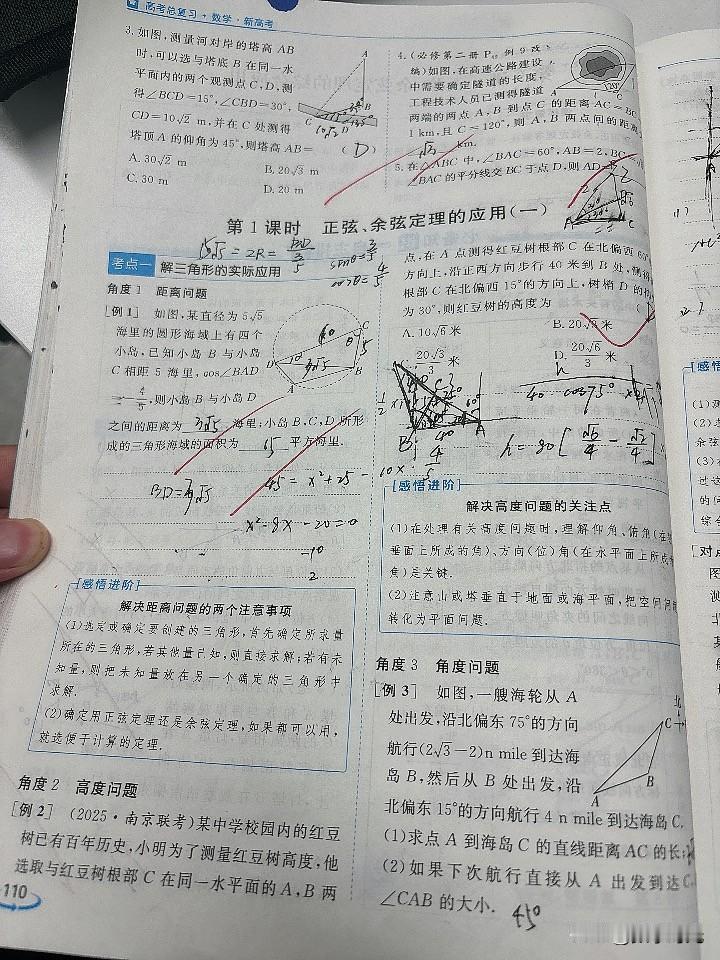 高考总复习·数学·新高考
3. 如图,测量河对岸的塔高 AB
时,可以选与塔底 B 在同一水
平面内的两个观测点 C,D,测
得∠BCD=15°,∠CBD=30°,
CD=10√2 m,并在 C 处测得
塔顶 A 的仰角为 45°,则塔高 AB=
( D )
A. 30√2 m
B. 20√3 m
C. 30 m
D. 20 m
4. (必修第二册 P 例 9 改
编)如图,在高速公路建设
中需要确定隧道的长度,
工程技术人员已测得隧道
两端的两点 A,B 到点 C 的距离 AC=BC
1 km,且 C=120°,则 A,B 两点间的距离
√3 km.
5. 在△ABC 中,∠BAC=60°,AB=2,BC
∠BAC 的平分线交 BC 于点 D,则 AD
第 1 课时 正弦、余弦定理的应用(一)
考点一 解三角形的实际应用
角度 1 距离问题
[例 1] 如图,某直径为 5√5
海里的圆形海域上有四个
小岛,已知小岛 B 与小岛
C 相距 5 海里,cos∠BAD
=-4/5,则小岛 B 与小岛 D
之间的距离为 3√5 海里;小岛 B,C,D 所形
成的三角形海域的面积为 15 平方海里.
sinθ=3/5
cosθ=4/5
45=x²+25-
x²-8x-20=0
-10
2
[感悟进阶]
解决距离问题的两个注意事项
(1)选定或确定要创建的三角形,首先确定所求量
所在的三角形,若其他量已知,则直接求解;若有未
知量,则把未知量放在另一个确定的三角形中
求解.
(2)确定用正弦定理还是余弦定理,如果都可以用,
就选便于计算的定理.
角度 2 高度问题
[例 2] (2025·南京联考)某中学校园内的红豆
树已有百年历史,小明为了测量红豆树高度,他
选取与红豆树根部 C 在同一水平面的 A,B 两
110
点,在 A 点测得红豆树根部 C 在北偏西 60°
方向上,沿正西方向步行 40 米到 B 处,测得
根部 C 在北偏西 15°的方向上,树梢 D 的
为 30°,则红豆树的高度为
A. 10√6 米
B. 20√3 米
20√3/3 米
D. 20√6/3 米
h=80[√6/4-√2/4]
[感悟进阶]
解决高度问题的关注点
(1)在处理有关高度问题时,理解仰角、俯角(在
垂面上所成的角)、方向(位)角(在水平面上所成
角)是关键.
(2)注意山或塔垂直于地面或海平面,把空间问
转化为平面问题.
角度 3 角度问题
[例 3] 如图,一艘海轮从 A
处出发,沿北偏东 75°的方向
航行(2√3-2)n mile 到达海
岛 B,然后从 B 处出发,沿
北偏东 15°的方向航行 4 n mile 到达海岛 C.
(1)求点 A 到海岛 C 的直线距离 AC 的长;
(2)如果下次航行直接从 A 出发到达 C,
∠CAB 的大小.
45°